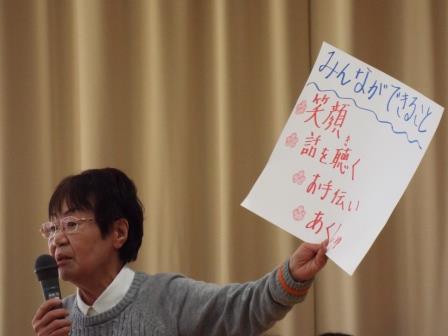 みんなができること
笑顔
話を聴く
お手伝い
あく!!